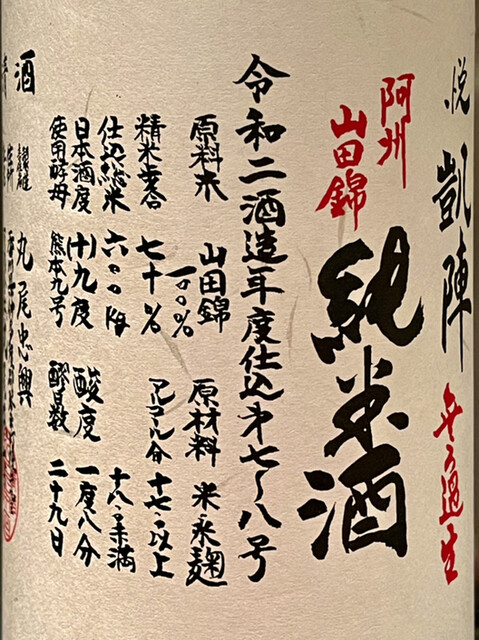 悦 凱陣 無ろ過生
阿州
山田錦
純米酒
令和二酒造年度仕込第七〜八号
原料米 山田錦 一〇〇% 原材料 米 米麹
精米歩合 七十% アルコール分 十七・〇以上
十八・〇未満
仕込総米 六〇〇kg
日本酒度 (+)九度 酸度 一度八分
使用酵母 熊本九号 醪日数 二十九日
酒 丸尾忠興